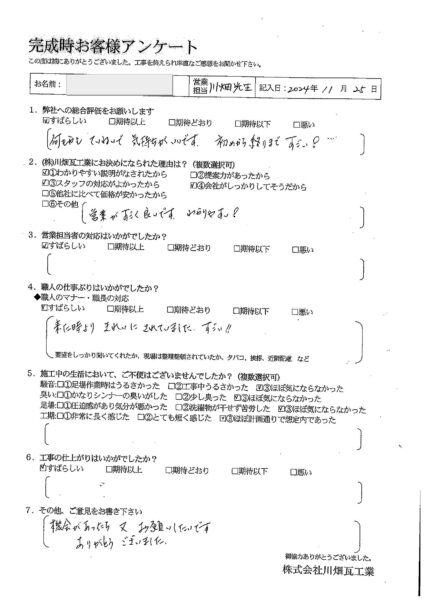 完成時お客様アンケート
この度は誠にありがとうございました。工事を終えられ率直なご感想をお聞かせ下さい。
お名前：
営業担当 川畑光生 記入日：2024年 11月 25日
1．弊社への総合評価をお願いします
☑すばらしい □期待以上 □期待どおり □期待以下 □悪い
ていねいで 気持ちがいいです。 初めから終りまで すごい？
2．(株)川畑瓦工業にお決めになられた理由は？（複数選択可）
☑①わかりやすい説明がなされたから □②提案力があったから
☑③スタッフの対応がよかったから ☑④会社がしっかりしてそうだから
□⑤他社に比べて価格が安かったから
□⑥その他
営業がすごく良いです
3．営業担当者の対応はいかがでしたか？
☑すばらしい □期待以上 □期待どおり □期待以下 □悪い
4．職人の仕事ぶりはいかがでしたか？
◆職人のマナー・職長の対応
☑すばらしい □期待以上 □期待どおり □期待以下 □悪い
来た時より きれいに されていました すごい!!
要望をしっかり聞いてくれたか、現場は整理整頓されていたか、タバコ、挨拶、近隣配慮 など
5．施工中の生活において、ご不便はございませんでしたか？（複数選択可）
騒音：□①足場作業時はうるさかった □②工事中うるさかった ☑③ほぼ気にならなかった
臭い：□①かなりシンナーの臭いがした □②少し臭った ☑③ほぼ気にならなかった
足場：□①圧迫感があり気分が悪かった □②洗濯物が干せず苦労した ☑③ほぼ気にならなかった
工期：□①非常に長く感じた □②とても短く感じた ☑③ほぼ計画通りで想定内であった
6．工事の仕上がりはいかがでしたか？
☑すばらしい □期待以上 □期待どおり □期待以下 □悪い
7．その他、ご意見をお書き下さい
機会があったら 又 お願いしたいです
ありがとう ございました.
御協力ありがとうございました。
株式会社川畑瓦工業